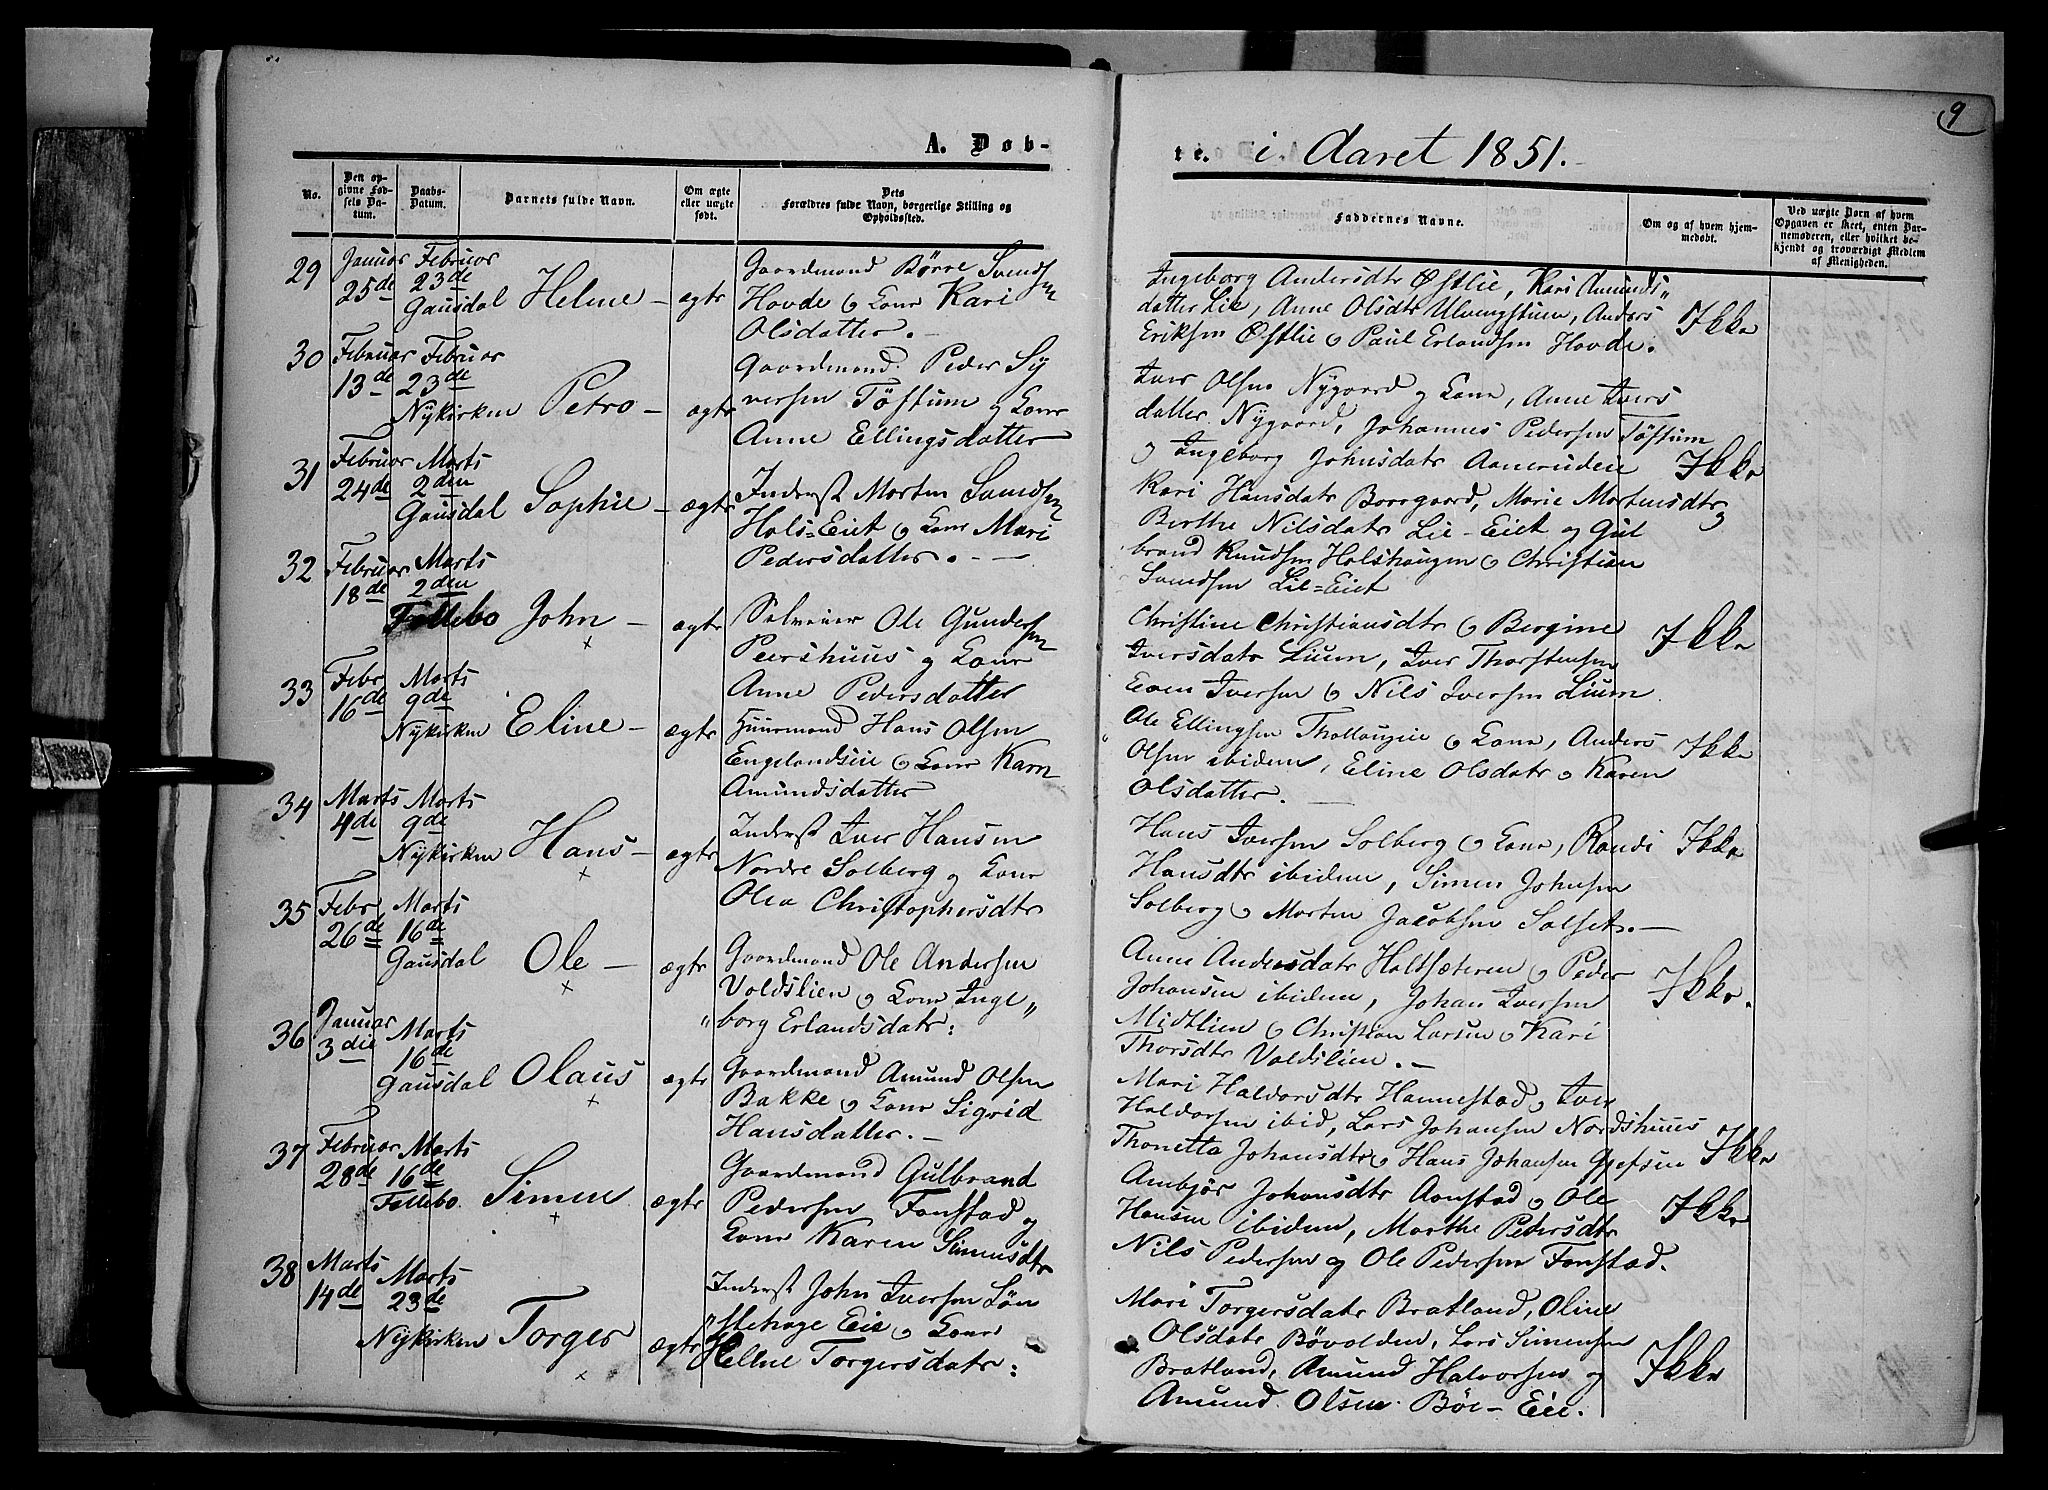 9
A. Døb-
te. i Aaret 1851.
No.
Den op-
givne Fød-
sels Da-
tum.
Daabs-
Datum.
Barnets fulde Navn.
Om ægte
eller uægte
født.
Dets
Forældres fulde Navn, borgerlige Stilling og
Opholdssted.
Faddernes Navne.
Om og af hvem hjem-
medøbt.
Ved uægte Børn af hvem
Opgaven er skeet, enten Bar-
nemoderen, eller hvilket be-
kjendt og troværdigt Medlem
af Menigheden.
29
Januar
25de
Februar
23de
Gausdal
Helene –
ægte
Gaardmand Børre Svends
Hovde & Kone Kari
Olsdatter. –
Ingeborg Andersdtr Østlie, Kari Amunds„
datter Lie, Anne Olsdtr Ulvingstuen, Anders
Eriksen Østlie & Paul Erlandsen Hovde.
Ikke
30
Februar
13de
Februar
23de
Nykirken
Petra –
ægte
Gaardmand Peder Sy
versen Töftum og Kone
Anne Ellingsdatter
Iver Olsen Nygaard og Kone, Anne Ivers
datter Nygaard, Johannes Pedersen Töftum
& Ingeborg Johnsdatr Aanerudeie
Ikke
31
Februar
24de
Marts
2den
Gausdal
Sophie –
ægte
Inderst Morten Svendsen
Hols=Eiet & Kone Mari
Pedersdatter. –
Kari Hansdatr Borrgaard, Marie Mortensdtr
Berthe Nilsdatr Lie-Eiet og Gul
brand Knudsen Holshaugen & Christian
Svendsen Lie=Eiet
32
Februar
18de
Marts
2den
Follebo
John –
ægte
Selveier Ole Gundersen
Peershuus og Kone
Anne Pedersdatter
Christine Christiansdtr & Bergine
Iversdatr Lium, Iver Thorstensen
Even Iversen & Nils Iversen Lium
Ikke
33
Febr
16de
Marts
9de
Nykirken
Eline –
ægte
Huusmand Hans Olsen
Engelandseie & Kone Karn
Amundsdatter
Ole Ellingsen Thollaugeie & Kone, Anders
Olsen ibidem, Eline Olsdatr & Karen
Olsdatter.
Ikke
34
Marts
4de
Marts
9de
Nykirken
Hans –
ægte
Inderst Iver Hansen
Nordre Solberg og Kone
Olea Christophersdtr
Hans Iversen Solberg & Kone, Randi
Hansdtr ibidem, Simen Johnsen
Solberg & Morten Jacobsen Solset. –
Ikke
35
Febr
26de
Marts
16de
Gausdal
Ole –
ægte
Gaardmand Ole Andersen
Voldslien & Kone Inge„
„borg Erlandsdatr:
Anne Andersdatr Holtsæteren & Peder
Johansen ibidem, Johan Iversen
Midtlien & Christian Larsen & Kari
Thorsdtr Voldslien. –
Ikke.
36
Januar
3die
Marts
16de
Gausdal
Olaus
ægte
Gaardmand Amund Olsen
Bakke & Kone Sigrid
Hansdatter. –
Mari Haldorsdtr Hannestad & Iver
Haldorsen ibid, Lars Johansen Nordshuus
Thonetta Johansdtr & Hans Johansen Gjefsen
Ikke
37
Februar
28de
Marts
16de
Follebo
Simen
ægte
Gaardmand Gulbrand
Pedersen Fonstad og
Kone Karen Simensdtr
Ambjör Johansdtr Aanstad & Ole
Hansen ibidem, Marthe Petersdtr
Nils Pedersen og Ole Pedersen Fonstad.
Ikke
38
Marts
14de
Marts
23de
Nykirken
Torger
ægte
Inderst John Iversen Løn
„stehage Eie & Kone
Hellne Torgersdatr:
Mari Torgersdatr Bratland, Oline
Olsdatr Bövolden, Lars Simensen
Bratland, Amund Halvorsen og
Amund Olsen Böe-Eie.
Ikke